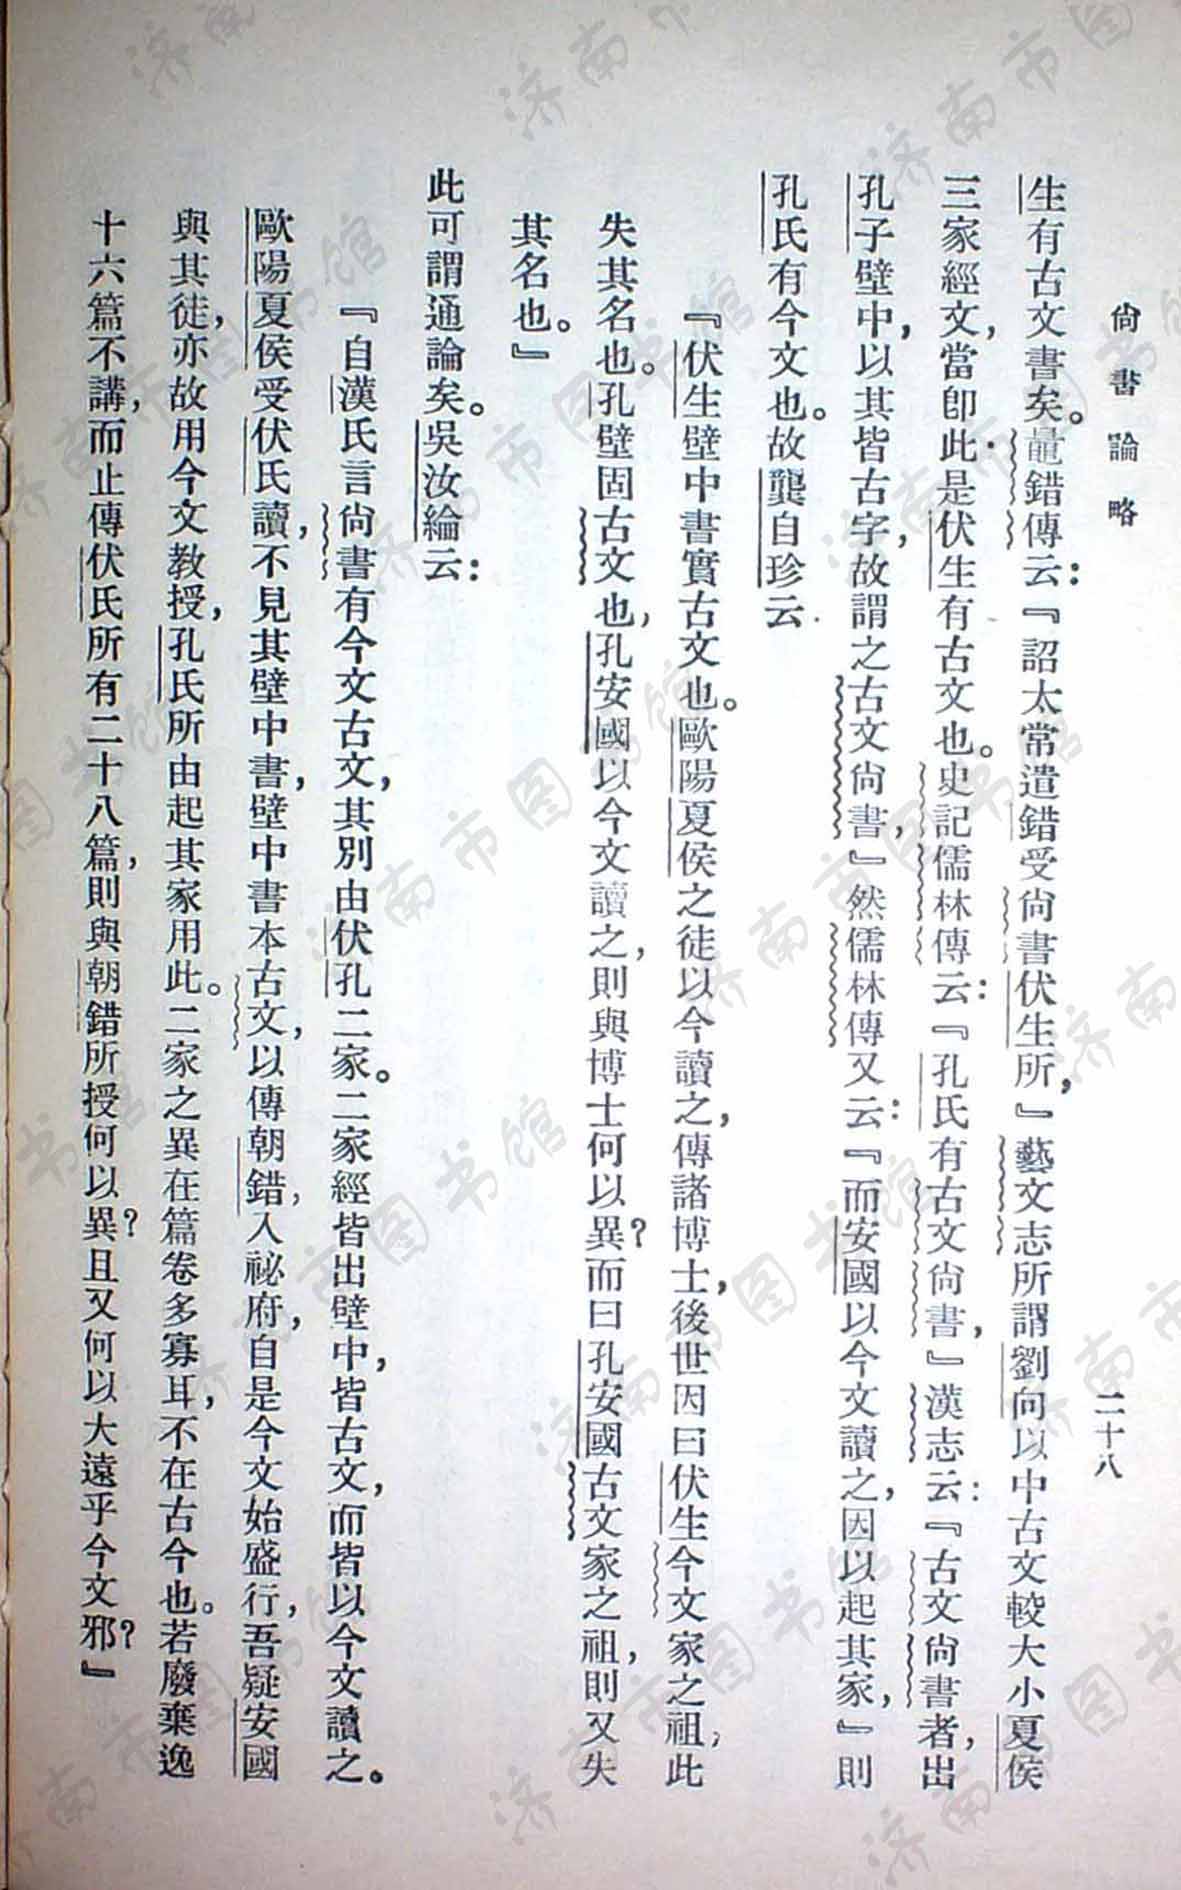 尙書論略
二十八
生有古文書矣。鼂錯傳云：『詔太常遣錯受尙書伏生所，』藝文志所謂劉向以中古文較大小夏侯
三家經文，當卽此。是伏生有古文也。史記儒林傳云：『孔氏有古文尙書，』漢志云：『古文尙書者，出
孔子壁中，以其皆古字，故謂之古文尙書，』然儒林傳又云：『而安國以今文讀之，因以起其家，』則
孔氏有今文也。故龔自珍云
『伏生壁中書實古文也。歐陽夏侯之徒以今讀之，傳諸博士，後世因曰伏生今文家之祖，此
失其名也。孔壁固古文也，孔安國以今文讀之，則與博士何以異？而曰孔安國古文家之祖，則又失
其名也。』
此可謂通論矣。吳汝綸云：
『自漢氏言尙書有今文古文，其別由伏孔二家。二家經皆出壁中，皆古文，而皆以今文讀之。
歐陽夏侯受伏氏讀，不見其壁中書，壁中書本古文，以傳朝錯，入祕府，自是今文始盛行，吾疑安國
與其徒，亦故用今文教授，孔氏所由起其家用此。二家之異在篇卷多寡耳，不在古今也。若廢棄逸
十六篇不講，而止傳伏氏所有二十八篇，則與朝錯所授何以異？且又何以大遠乎今文邪？』
济南市图书馆